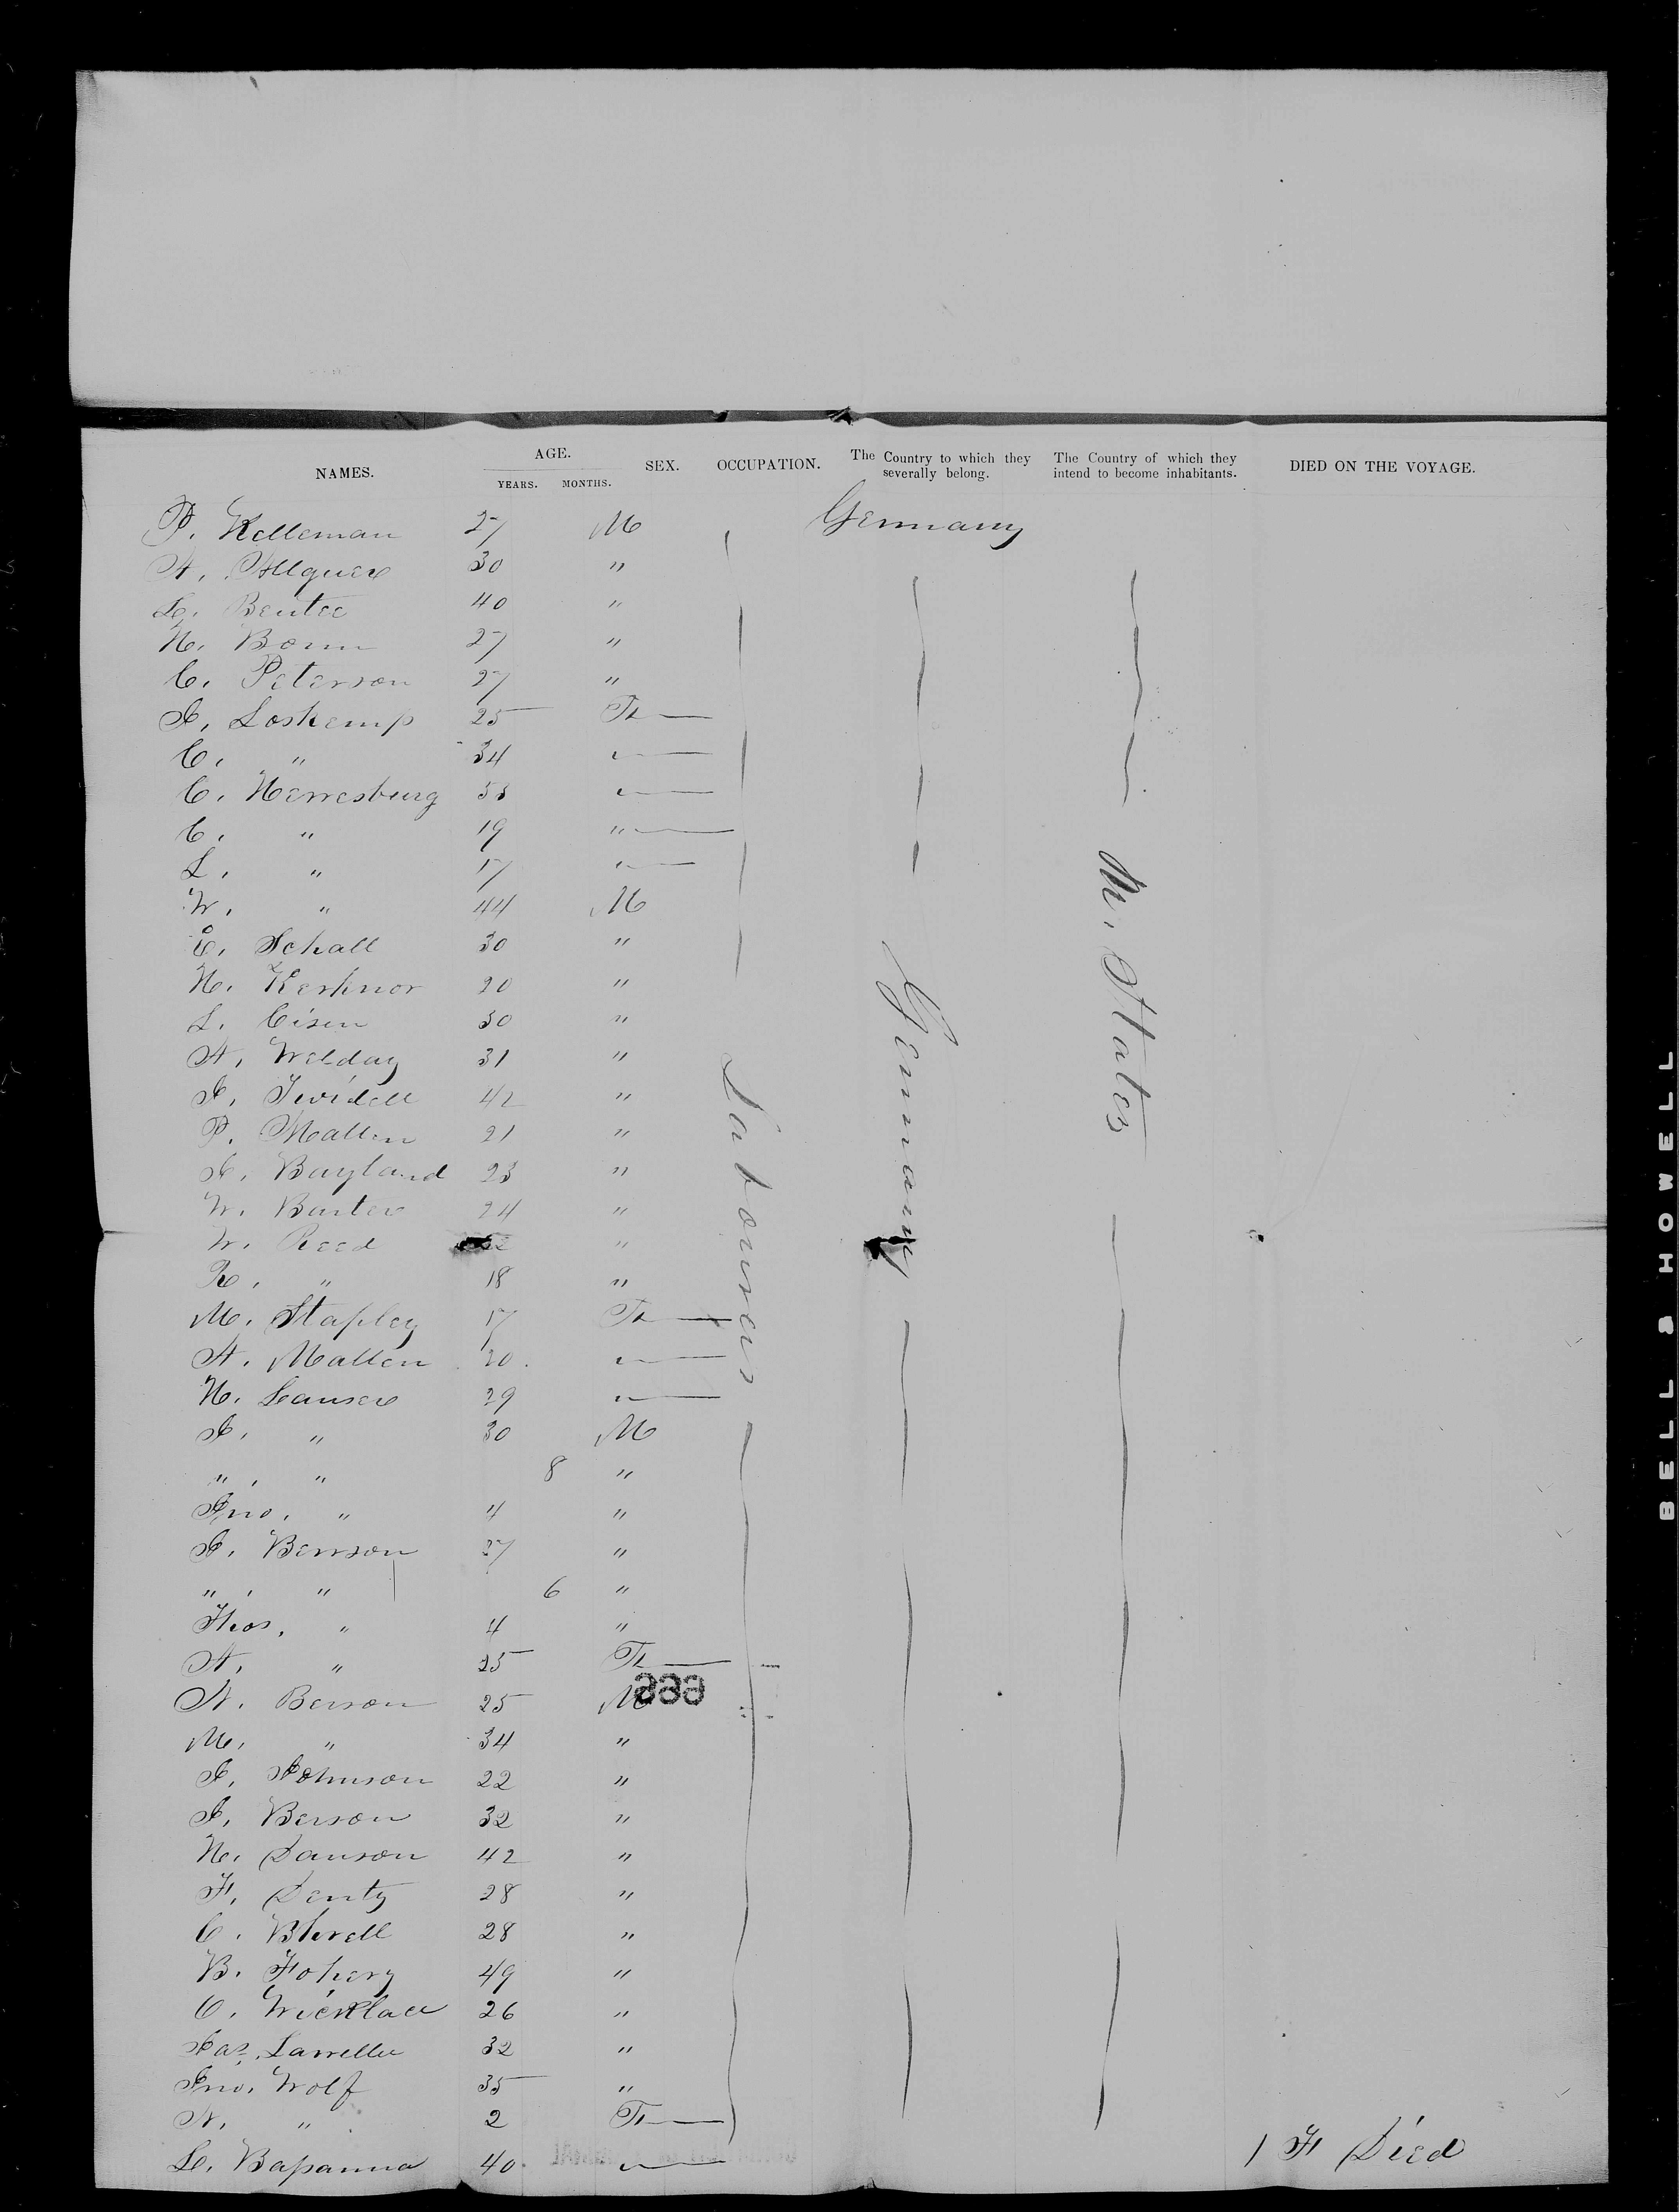 NAMES. AGE. SEX. OCCUPATION. The Country to which they severally belong. The Country of which they intend to become inhabitants. DIED ON THE VOYAGE.
YEARS. MONTHS.
P. Kelleman 27 M Germany
A. Allguer 30 "
Bentee 40 "
H. Bonn 27 "
C. Peterson 27 "
J. Loskemp 25 F
C. " 34
C. Herresburg 53
C. " 19 "
L. " 17
W. " 44 M
C. Schall 30 "
H. Kerknor 20 "
L. Cisen 30 "
A. Welday 31 "
J. Twidell 42 "
P. Mallen 21 "
J. Bayland 23 "
W. Barter 24 "
W. Reed "
R. " 18 "
M. Stapley 17 F
A. Mallen 20
H. Lanser 29
J. " 30 M
" " 8 "
Jno. " 4 "
J. Benson 27 "
" " 6 "
Thos. " 4 "
A. " 25 F
N. Berson 25 M
M. " 34 "
J. Johnson 22 "
J. Berson 32 "
H. Danson 42 "
F. Denty 28 "
C. Blwell 28 "
B. Fokery 49 "
C. Wicklace 26 "
Jas. Larrellee 32 "
Jno. Wolf 35 "
N. " 2 F
Bapanna 40 1 F Died
Labourers
Germany
U. States
BELL & HOWELL